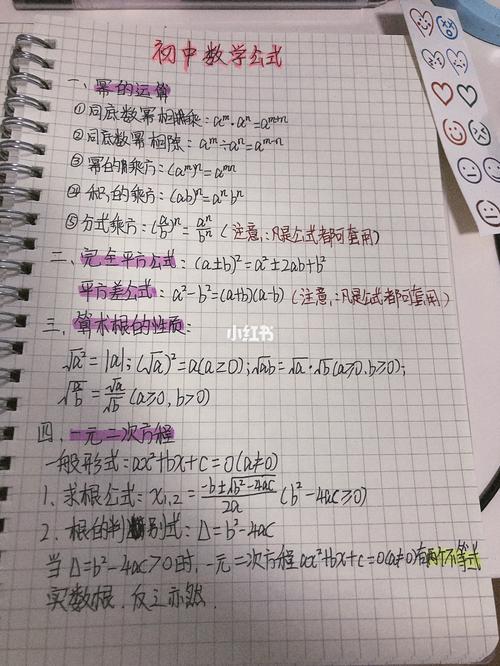 初中数学公式
一、幂的运算
①同底数幂相乘：aᵐ·aⁿ=aᵐ⁺ⁿ
②同底数幂相除：aᵐ÷aⁿ=aᵐ⁻ⁿ
③幂的乘方：(aᵐ)ⁿ=aᵐⁿ
④积的乘方：(ab)ⁿ=aⁿbⁿ
⑤分式乘方：(a/b)ⁿ=aⁿ/bⁿ（注意：凡是公式都可套用）
二、完全平方公式：(a±b)²=a²±2ab+b²
平方差公式：a²-b²=(a+b)(a-b)（注意：凡是公式都可套用）
三、算术根的性质：
小红书
√a²=|a|；(√a)²=a(a≥0)；√ab=√a·√b(a≥0,b≥0)；
√a/b=√a/√b(a≥0,b>0)
四、一元二次方程
一般形式：ax²+bx+c=0(a≠0)
1、求根公式：x₁,₂=(-b±√b²-4ac)/2a(b²-4ac≥0)
2、根的判别式：Δ=b²-4ac
当Δ=b²-4ac>0时，一元二次方程ax²+bx+c=0(a≠0)有两个不等式
实数根，反之亦然．